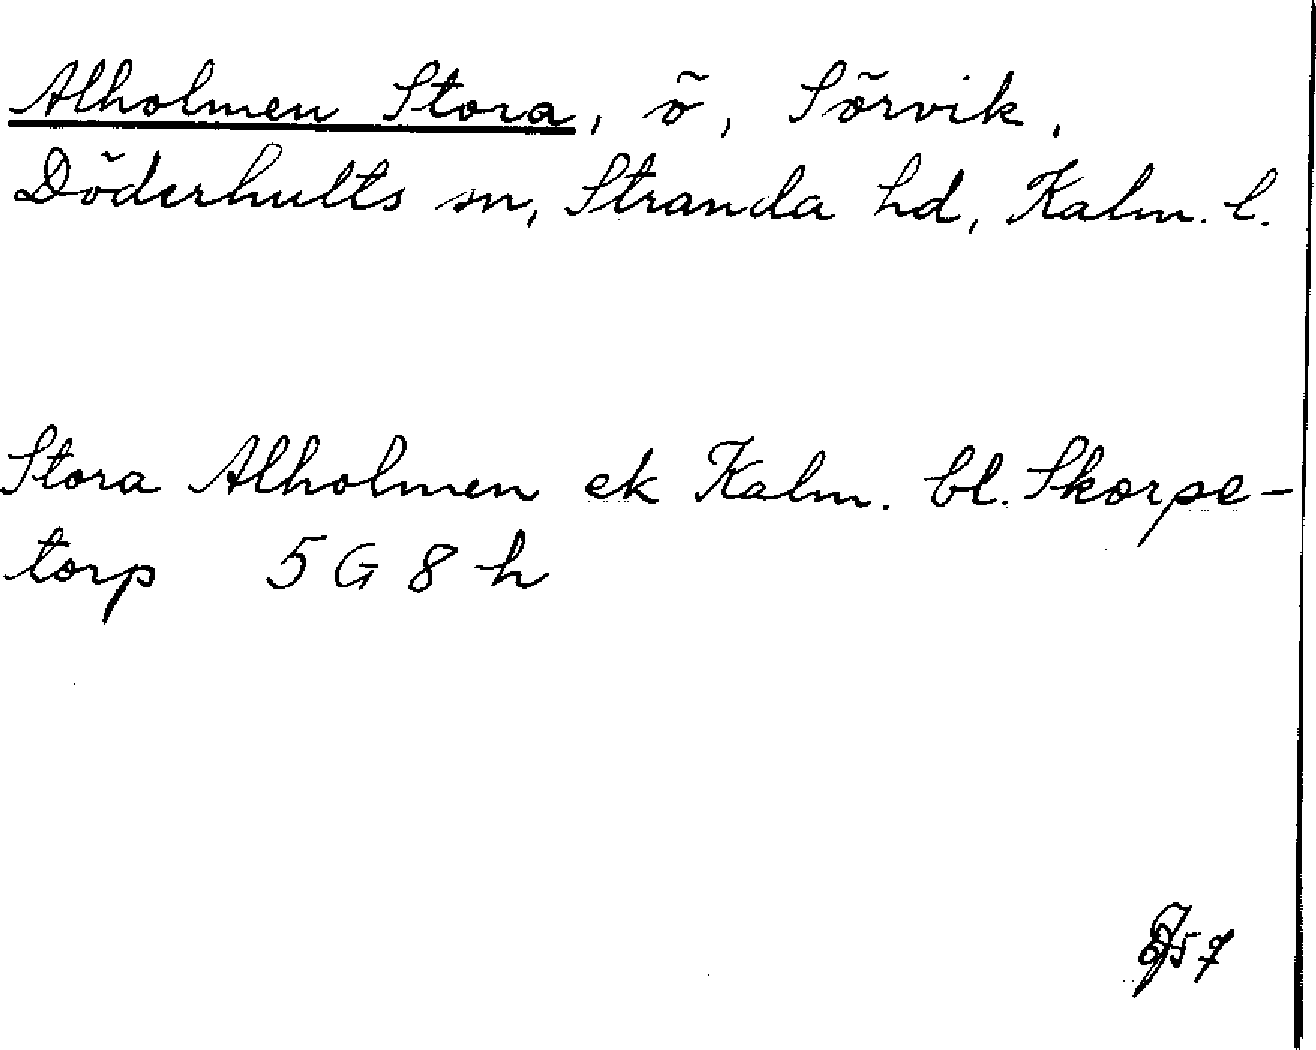 Alholmen Stora, ö, Sörvik,
Döderhults sn, Stranda hd, Kalm. l.
Stora Alholmen ek Kalm. bl. Skorpe-
torp 5 G 8 h
57